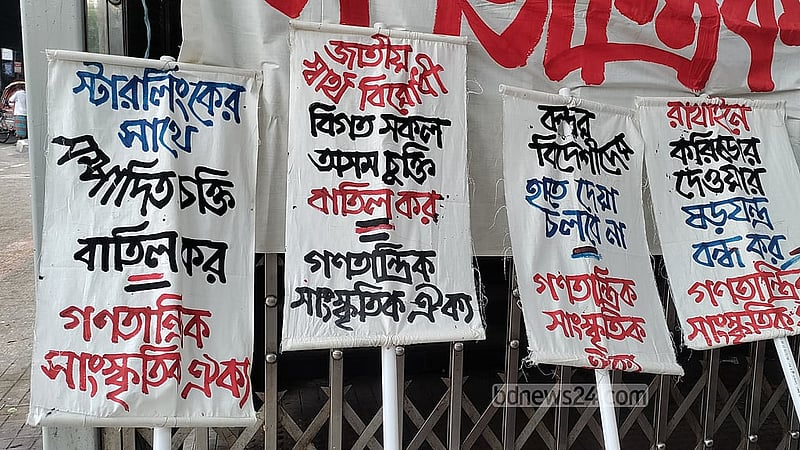 গণতান্ত্রিক
স্টারলিংকের
সাথে
সম্পাদিত চুক্তি
বাতিল কর
গণতান্ত্রিক
সাংস্কৃতিক ঐক্য
জাতীয়
স্বার্থ বিরোধী
বিগত সকল
অসম চুক্তি
বাতিল কর
গণতান্ত্রিক
সাংস্কৃতিক ঐক্য
বন্দর
বিদেশীদের
হাতে দেয়া
চলবে না
গণতান্ত্রিক
সাংস্কৃতিক
ঐক্য
রাখাইনে
করিডোর
দেওয়ার
ষড়যন্ত্র
বন্ধ কর
গণতান্ত্রিক
সাংস্কৃতিক
bdnews24.com